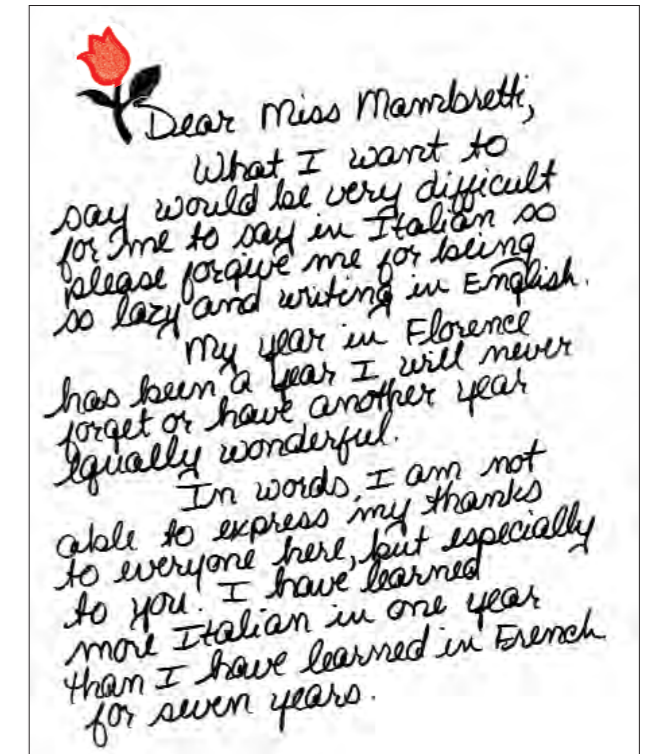 Dear Miss Mambretti,
What I want to
say would be very difficult
for me to say in Italian so
please forgive me for being
so lazy and writing in English.
My year in Florence
has been a year I will never
forget or have another year
equally wonderful.
In words, I am not
able to express my thanks
to everyone here, but especially
to you! I have learned
more Italian in one year
than I have learned in French
for seven years.